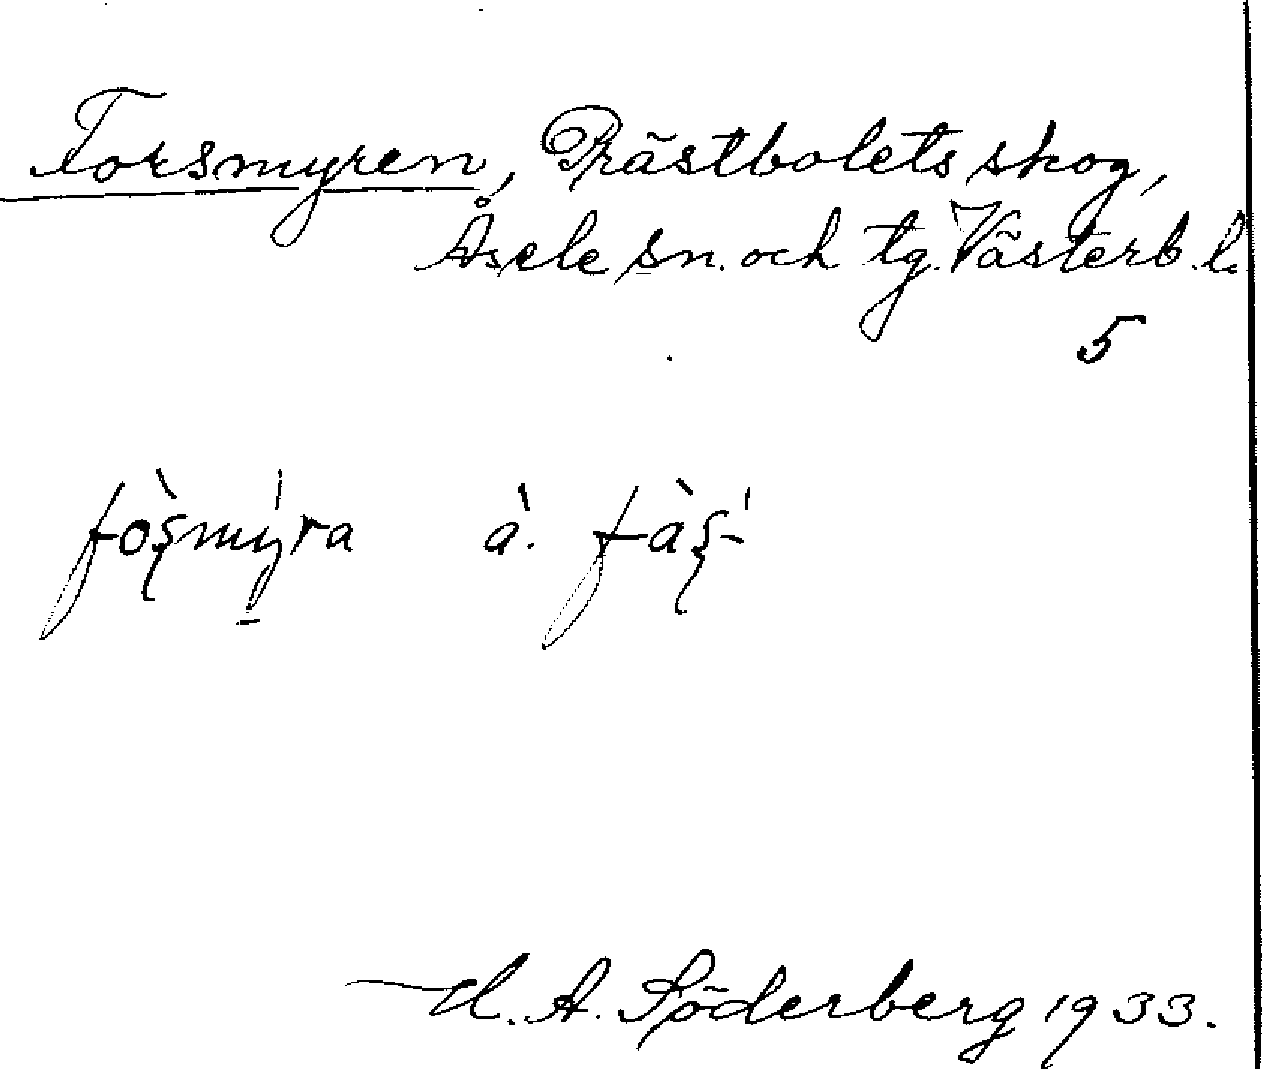 Forsmyren, Prästbolets skog,
Åsele sn. och tg. Västerb. l.
5
fòʂmýra à. fàʂ-́
H. A. Söderberg 1933.